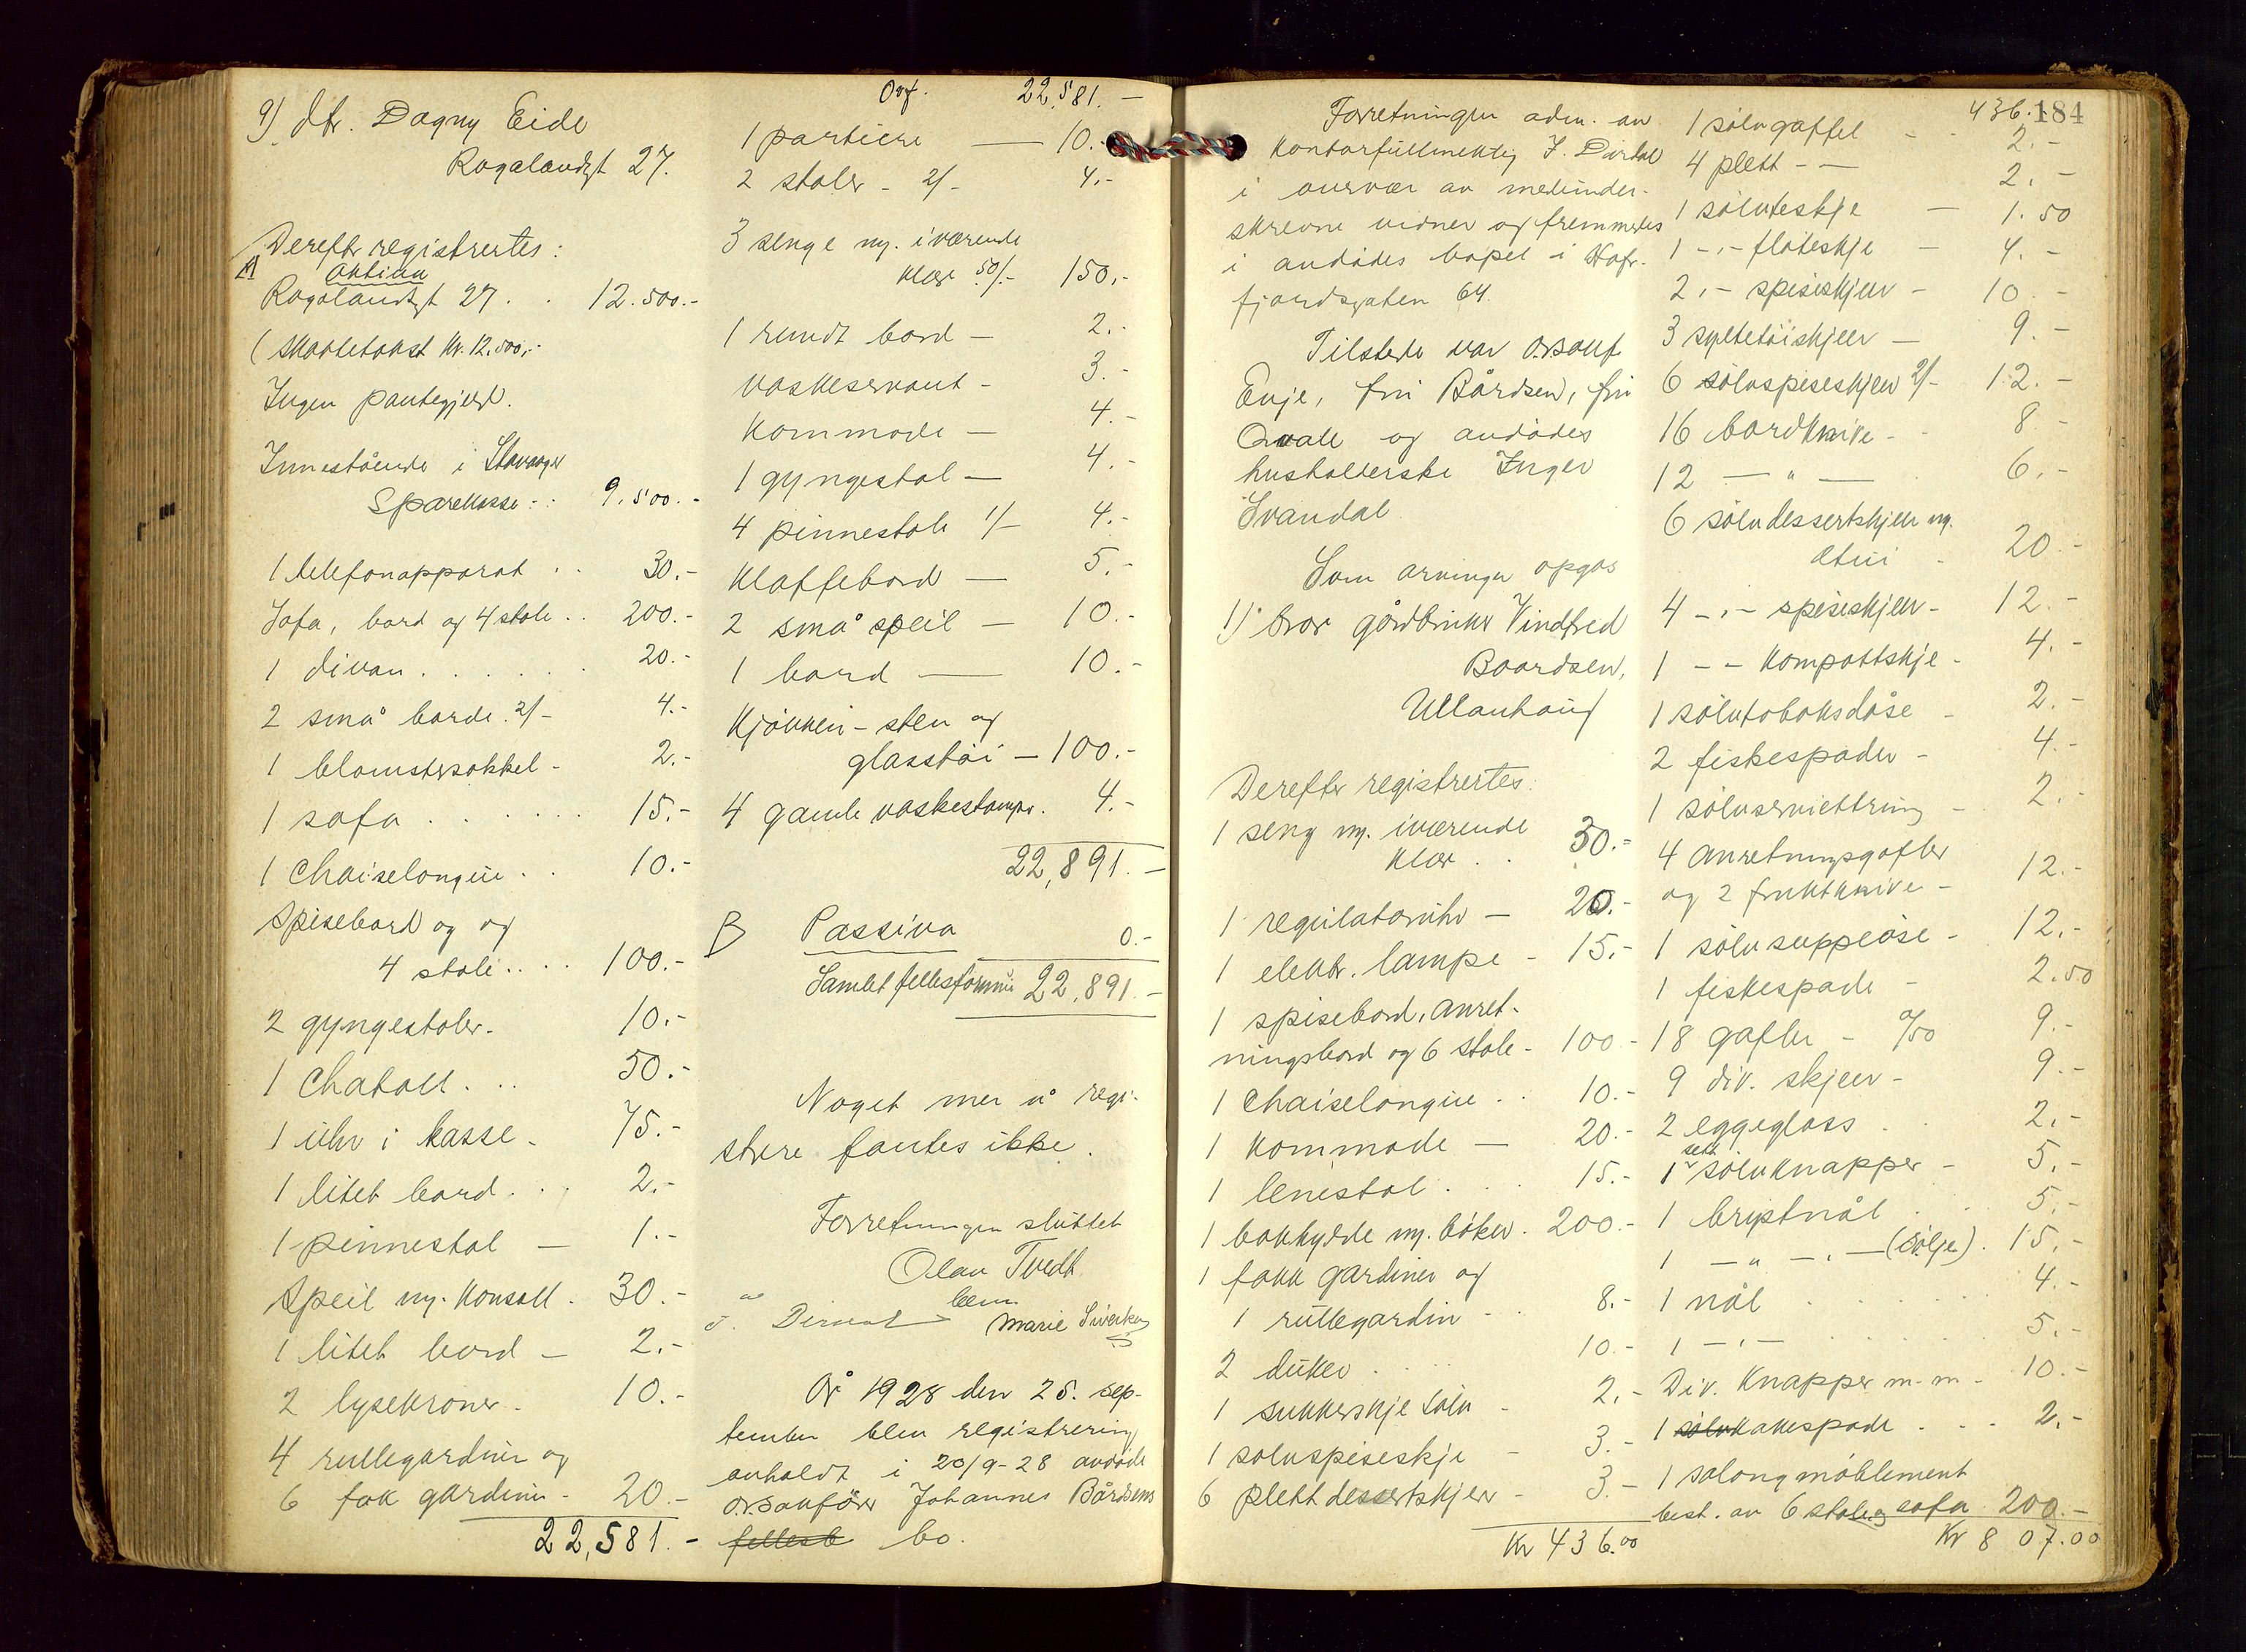 9) dtr. Dagny Eide
Rogalandsgt 27.
Derefter registrertes:
A Aktiva
Rogalandsgt 27 . . 12.500.-
(Skattetakst Kr. 12.500,-
Ingen pantegjeld.
Innestående i Stavanger
Sparekasse . . 9.500.-
1 telefonapparat . . 30.-
Sofa, bord og 4 stole . . 200.-
1 divan . . . . . . 20.-
2 små borde. 2/- 4.-
1 blomstersokkel - 2.-
1 sofa . . . . . . 15.-
1 Chaiselongue . . 10.-
Spisebord og og
4 stole . . . . 100.-
2 gyngestoler - 10.-
1 Chatoll . . . 50.-
1 uhr i kasse - 75.-
1 litet bord . . . 2.-
1 pinnestol — 1.-
Speil m. Konsoll . 30.-
1 litet bord — 2.-
2 lysekroner - 10.-
4 rullegardiner og
6 fak gardiner - 20.-
22,581.-
Ovf. 22,581.-
1 partiere — 10.-
2 stoler - 2/- 4.-
3 senge m. iværende
klær 50/- 150,-
1 rundt bord — 2.-
Vaskeservant - 3.-
Kommode — 4.-
1 gyngestol — 4.-
4 pinnestole 1/- 4.-
Klaffebord — 5.-
2 små speil — 10.-
1 bord — 10.-
Kjøkken - sten og
glasstøi — 100.-
4 gamle vaskestamper. 4.-
22,891.-
B Passiva 0.-
Samlet fellesformue 22,891.-
Noget mer å regi-
strere fantes ikke.
Forretningen sluttet
Olav Tvedt
bem.
Marie Sivertsen
År 1928 den 25. sep-
tember blev registrering
avholdt i 20/9-28 avdøde
o.r.sakfører Johannes Bårdsens
fellesb bo.
184
Forretningen adm. av
Kontorfullmektig J. Dirdal
i overvær av medunder-
skrevne vidner og fremmedes
i avdødes bopel i Hafrs-
fjordsgaten 64.
Tilstede var o.r.sakf.
Enje, fru Bårdsen, fru
Qvale og avdødes
husholderske Inger
Svandal
Som arvinger opgas
1) bror gårdbruker Vindfred
Baardsen,
Ullanhaug
Derefter registrertes:
1 seng m. iværende
klær . . 30.-
1 regulatoruhr — 20.-
1 elektr. lampe - 15.-
1 spisebord, anret-
ningsbord og 6 stole - 100 -
1 Chaiselongue . . 10.-
1 Kommode — 20.-
1 lenestol . . . 15.-
1 bokhylde m. bøker . 200.-
1 fakk gardiner og
1 rullegardin - . 8.-
2 duker . . . . 10.-
1 sukkerskje sølv - 2.-
1 sølvspiseskje - 3.-
6 plett dessertskjeer - 3.-
Kr 436.00
436.-
1 sølvgaffel - . 2.-
4 plett - — 2.-
1 sølvteskje — 1.50
1 -,- fløteskje - 4.-
2 ,- spiseskjeer - 10.-
3 syltetøiskjeer — 9.-
6 sølvspiseskjeer 2/- 12.-
16 bordknive - - 8.-
12 — " — 6.-
6 sølvdessertskjeer m.
etui . 20.-
4 -,- spiseskjeer - 12.-
1 - - Kompottskje - 4.-
1 sølvtobaksdåse - 2.-
2 fiskespader - 4.-
1 sølvserviettring - 2.-
4 anretningsgafler
og 2 fruktknive - 12.-
1 sølvsuppeøse - 12.-
1 fiskespade - 2.50
18 gafler - 0/50 9.-
9 div. skjeer - 9.-
2 eggeglass . . 2.-
1 sett sølvknapper - 5.-
1 brystnål . . 5.-
1 — " — . — (Sølje) . 15.-
1 nål . . . . . . 4.-
1 -,- . . . . . . 5.-
Div. Knapper m.m - 10.-
1 sølvkakespade . . . 2.-
1 salongmøblement
best. av 6 stole og sofa 200.-
Kr 807.00